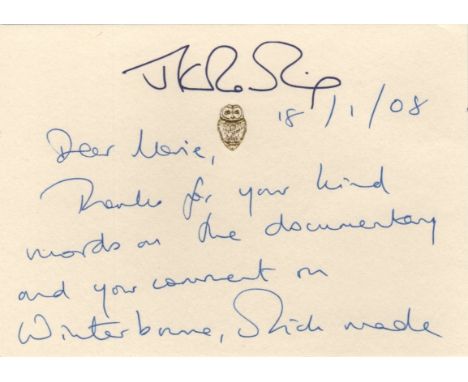 JK Rowling
18/1/08
Dear Marie,
Thanks for your kind
words on the documentary
and your comment on
Winterbourne, which made